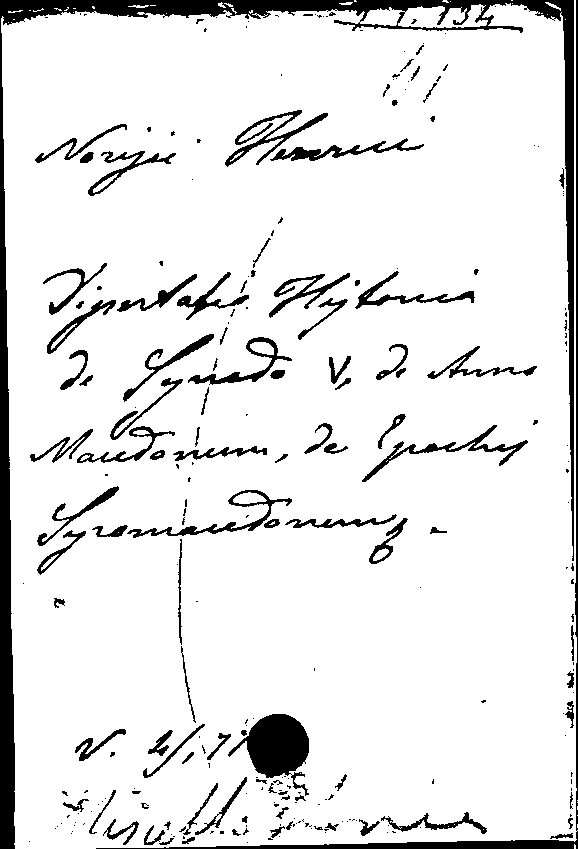 1 1. 134
Norijii Henrici
Dissertatio Historica
de Synodo V, de Anno
Macedonum, de Epochis
Syromacedonum.
V. 4/, 77